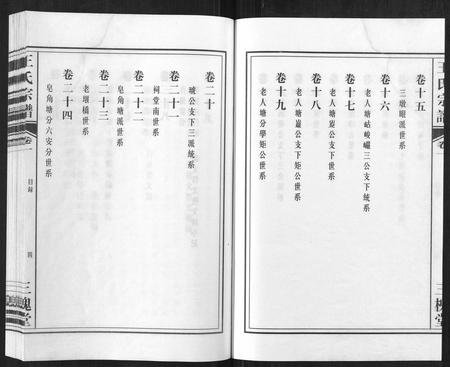 王氏宗譜
卷一
三槐堂
卷十五
三墩眼派世系
卷十六
老人塘岵峻巏三公支下統系
卷十七
老人塘嶷公支下世系
卷十八
老人塘嶷公支下矩公世系
卷十九
老人塘分學矩公世系
卷二十
琥公支下三派統系
卷二十一
祠堂南世系
卷二十二
皂角塘派世系
卷二十三
老堰橋世系
卷二十四
皂角塘分六安分世系
王氏宗譜
卷一
目録
四
三槐堂